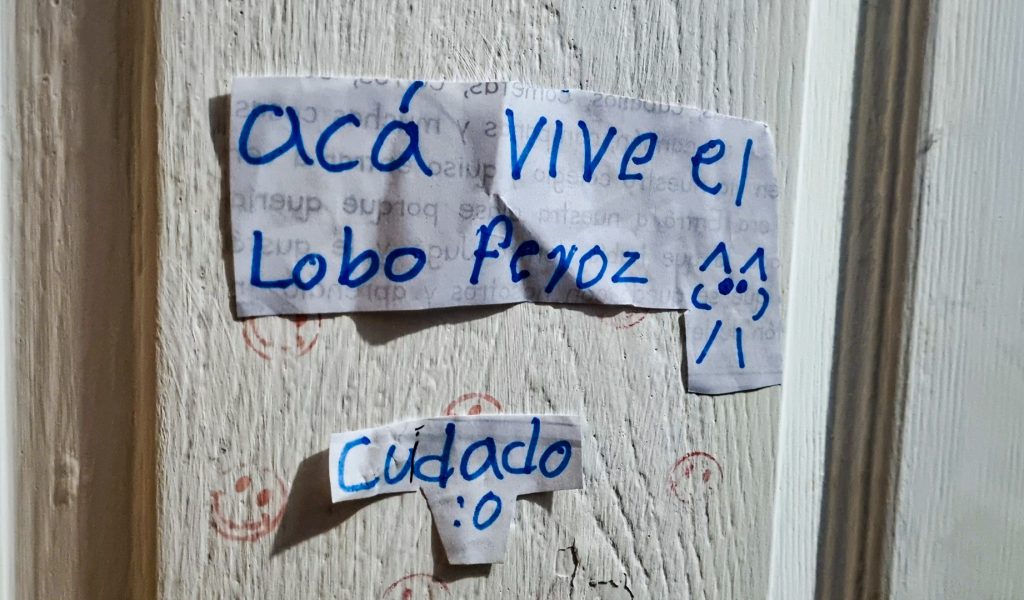 acá vive el
Lobo feroz
Cuidado
:o